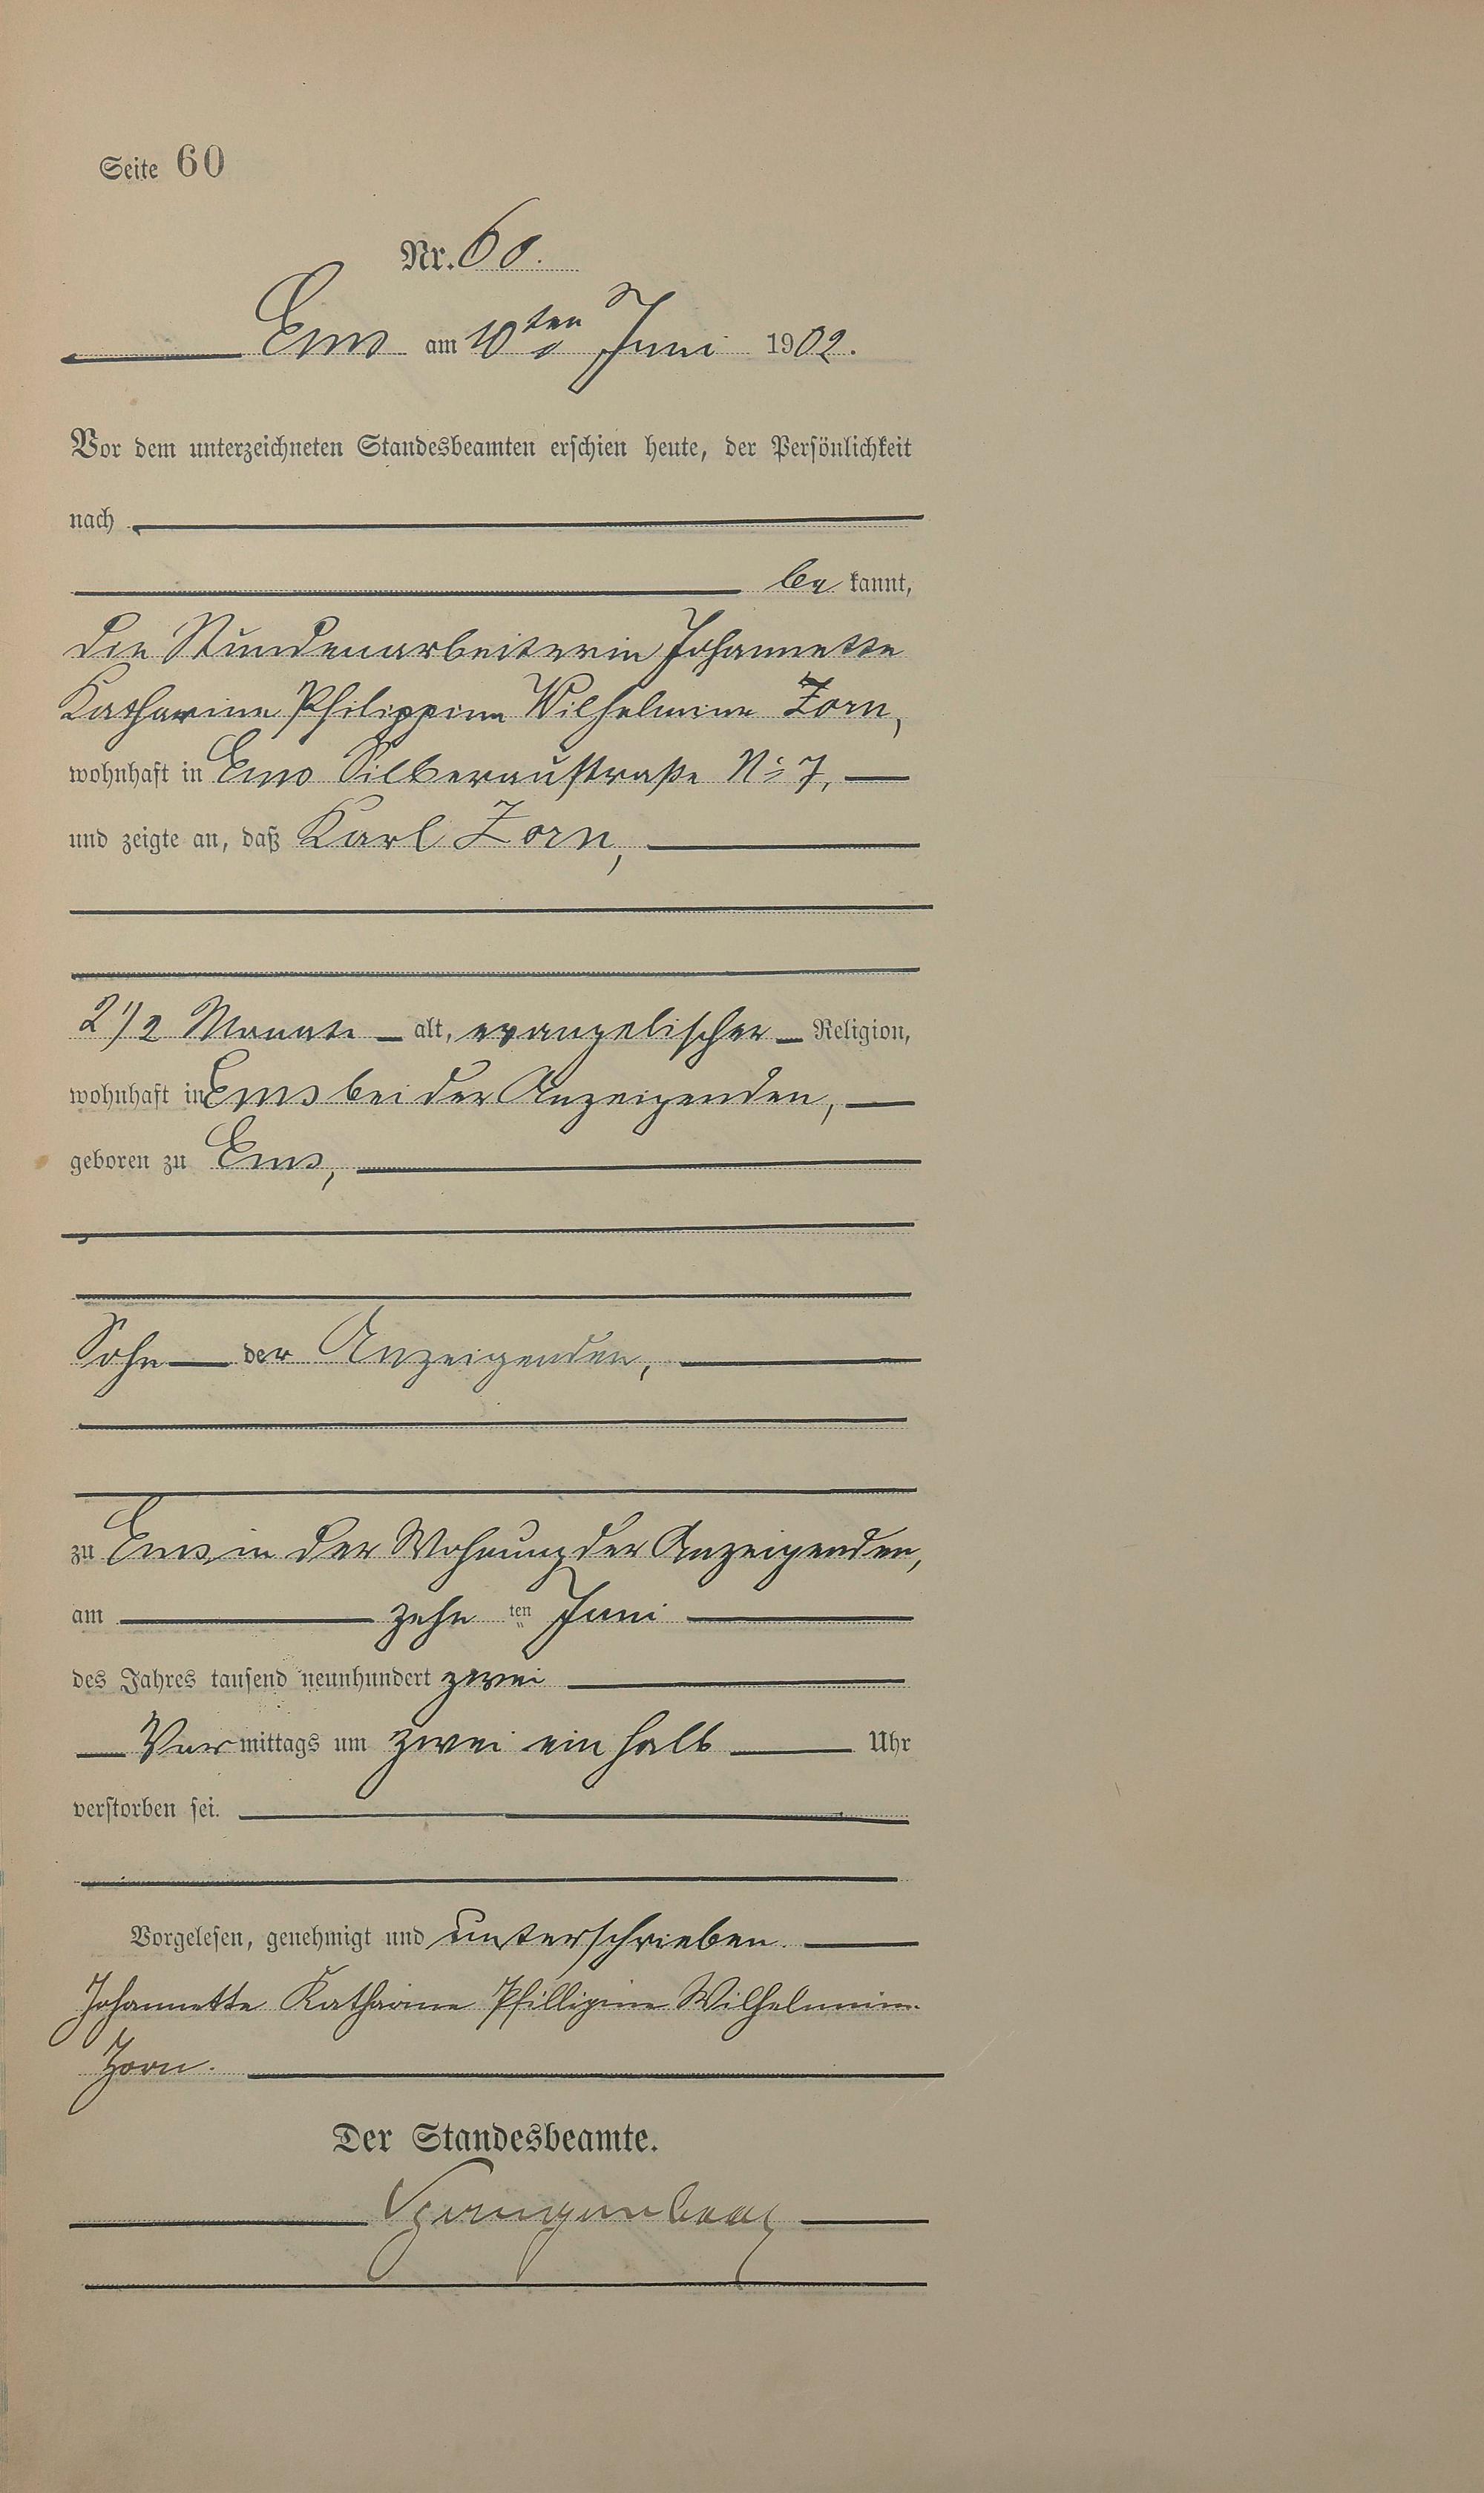 Seite 60
Nr. 60.
Ems am 10ten Juni 1902.
Vor dem unterzeichneten Standesbeamten erschien heute, der Persönlichkeit
nach
be kannt,
die Stundenarbeiterin Johannette
Katharine Philippine Wilhelmine Zorn,
wohnhaft in Ems Silberaustraße No 7,
und zeigte an, daß Karl Zorn,
2 1/2 Monate alt, evangelischer Religion,
wohnhaft in Ems bei der Anzeigenden,
geboren zu Ems,
Sohn der Anzeigenden,
zu Ems in der Wohnung der Anzeigenden,
am zehn ten Juni
des Jahres tausend neunhundert zwei
Vor mittags um zwei ein halb Uhr
verstorben sei.
Vorgelesen, genehmigt und unterschrieben.
Johannette Katharine Phillipine Wilhelmine
Zorn.
Der Standesbeamte.